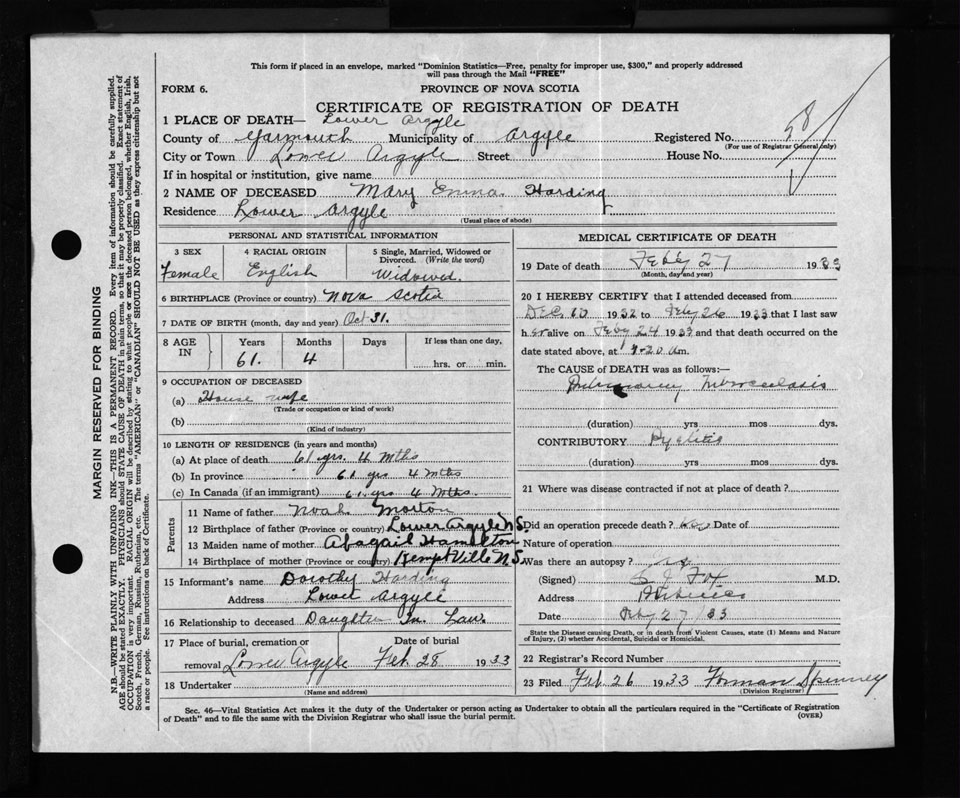 This form if placed in an envelope, marked "Dominion Statistics—Free, penalty for improper use, $300," and properly addressed
will pass through the Mail "FREE"
FORM 6.
PROVINCE OF NOVA SCOTIA
CERTIFICATE OF REGISTRATION OF DEATH
1 PLACE OF DEATH— Lower Argyle
County of Yarmouth Municipality of Argyle Registered No.
(For use of Registrar General only)
58
City or Town Lower Argyle Street House No.
If in hospital or institution, give name
2 NAME OF DECEASED Mary Emma Harding
Residence Lower Argyle
(Usual place of abode)
PERSONAL AND STATISTICAL INFORMATION
3 SEX 4 RACIAL ORIGIN 5 Single, Married, Widowed or
Divorced. (Write the word)
Female English Widowed.
6 BIRTHPLACE (Province or country) Nova Scotia
7 DATE OF BIRTH (month, day and year) Oct 31.
8 AGE IN Years Months Days If less than one day,
61. 4 hrs. or min.
9 OCCUPATION OF DECEASED
(a) House wife
(Trade or occupation or kind of work)
(b)
(Kind of industry)
10 LENGTH OF RESIDENCE (in years and months)
(a) At place of death 61 yrs. 4 mths
(b) In province 61 yrs 4 mths
(c) In Canada (if an immigrant) 61 yrs 4 mths.
Parents
11 Name of father Noah Morton
12 Birthplace of father (Province or country) Lower Argyle N.S.
13 Maiden name of mother Abagail Hamilton
14 Birthplace of mother (Province or country) Kemptville N.S.
15 Informant's name Dorothy Harding
Address Lower Argyle
16 Relationship to deceased Daughter In Law
17 Place of burial, cremation or Date of burial
removal Lower Argyle Feb. 28 1933
18 Undertaker
(Name and address)
MEDICAL CERTIFICATE OF DEATH
19 Date of death Feby 27 1933
(Month, day and year)
20 I HEREBY CERTIFY that I attended deceased from
Dec 1932 to Feby 26 1933 that I last saw
her alive on Feby 24 1933 and that death occurred on the
date stated above, at 20 am.
The CAUSE of DEATH was as follows:—
Pulmonary Tuberculosis
(duration) yrs mos dys.
CONTRIBUTORY Pyelitis
(duration) yrs mos dys.
21 Where was disease contracted if not at place of death?
Did an operation precede death? no Date of
Nature of operation
Was there an autopsy? no
(Signed) Fox M.D.
Address
Date Feby 27/33
State the Disease causing Death, or in death from Violent Causes, state (1) Means and Nature
of Injury, (2) whether Accidental, Suicidal or Homicidal.
22 Registrar's Record Number
23 Filed Feb 26 1933 Forman Spinney
(Division Registrar)
Sec. 46—Vital Statistics Act makes it the duty of the Undertaker or person acting as Undertaker to obtain all the particulars required in the "Certificate of Registration
of Death" and to file the same with the Division Registrar who shall issue the burial permit.
(OVER)
MARGIN RESERVED FOR BINDING
N.B.—WRITE PLAINLY WITH UNFADING INK—THIS IS A PERMANENT RECORD. Every item of information should be carefully supplied.
AGE should be stated EXACTLY. PHYSICIANS should STATE CAUSE OF DEATH in plain terms, so that it may be properly classified. Exact statement of
OCCUPATION is very important. RACIAL ORIGIN will be described by stating to what people or race the deceased person belonged, whether English, Irish,
Scotch, French, German, Russian, Ruthenian, etc. The terms "AMERICAN" or "CANADIAN" SHOULD NOT BE USED as they express citizenship but not
a race or people. See instructions on back of Certificate.